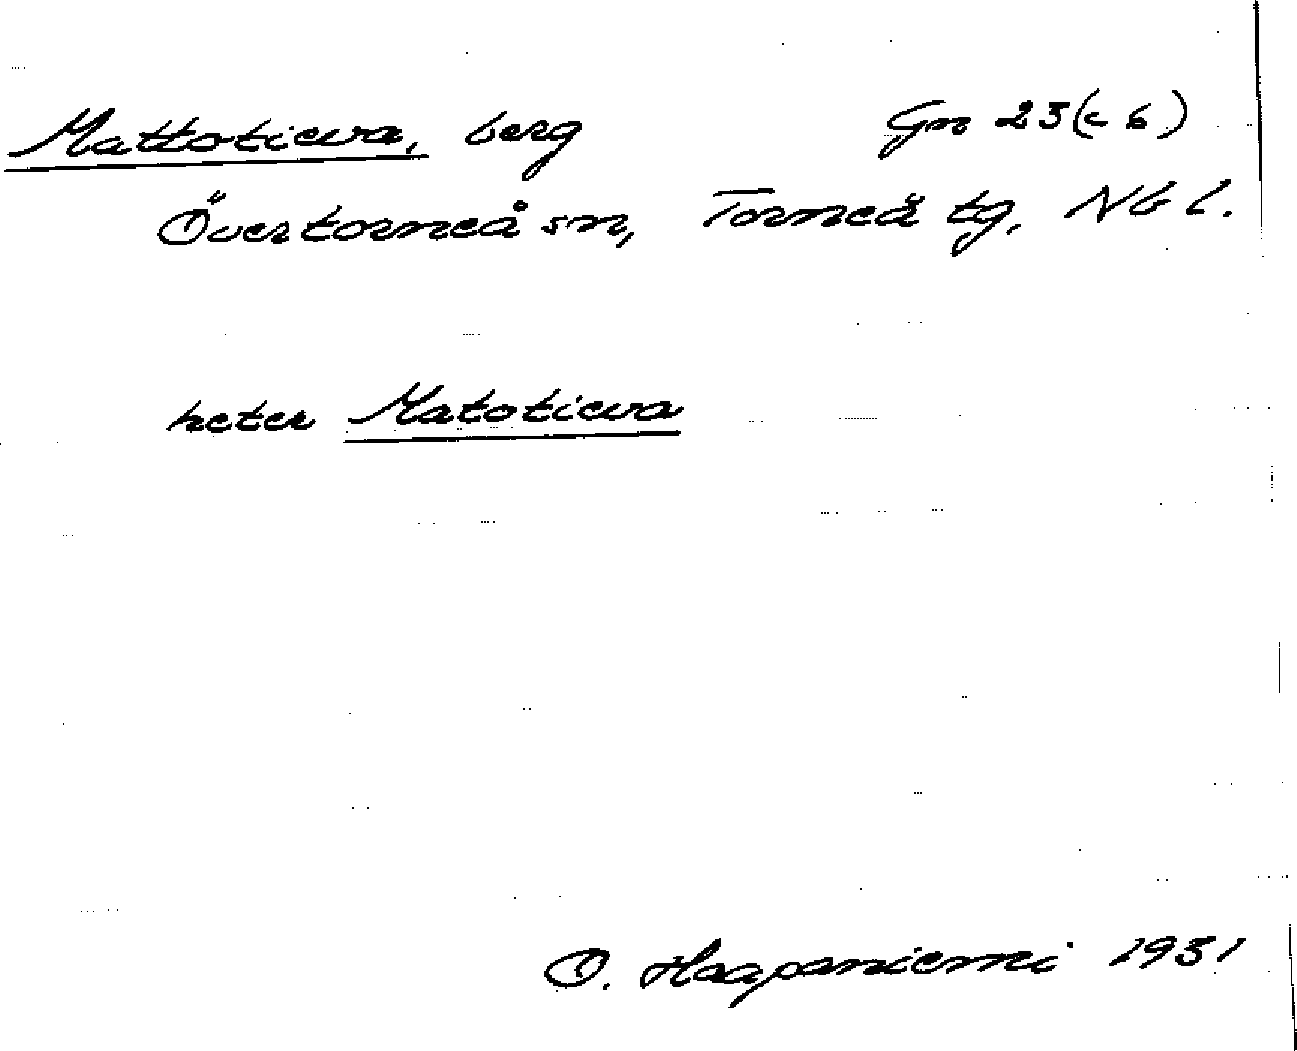 Mattotieva, berg Gn 23(c 6)
Övertorneå sn, Torneå tg, Nb l.
heter Matotieva
O. Haapaniemi 1931